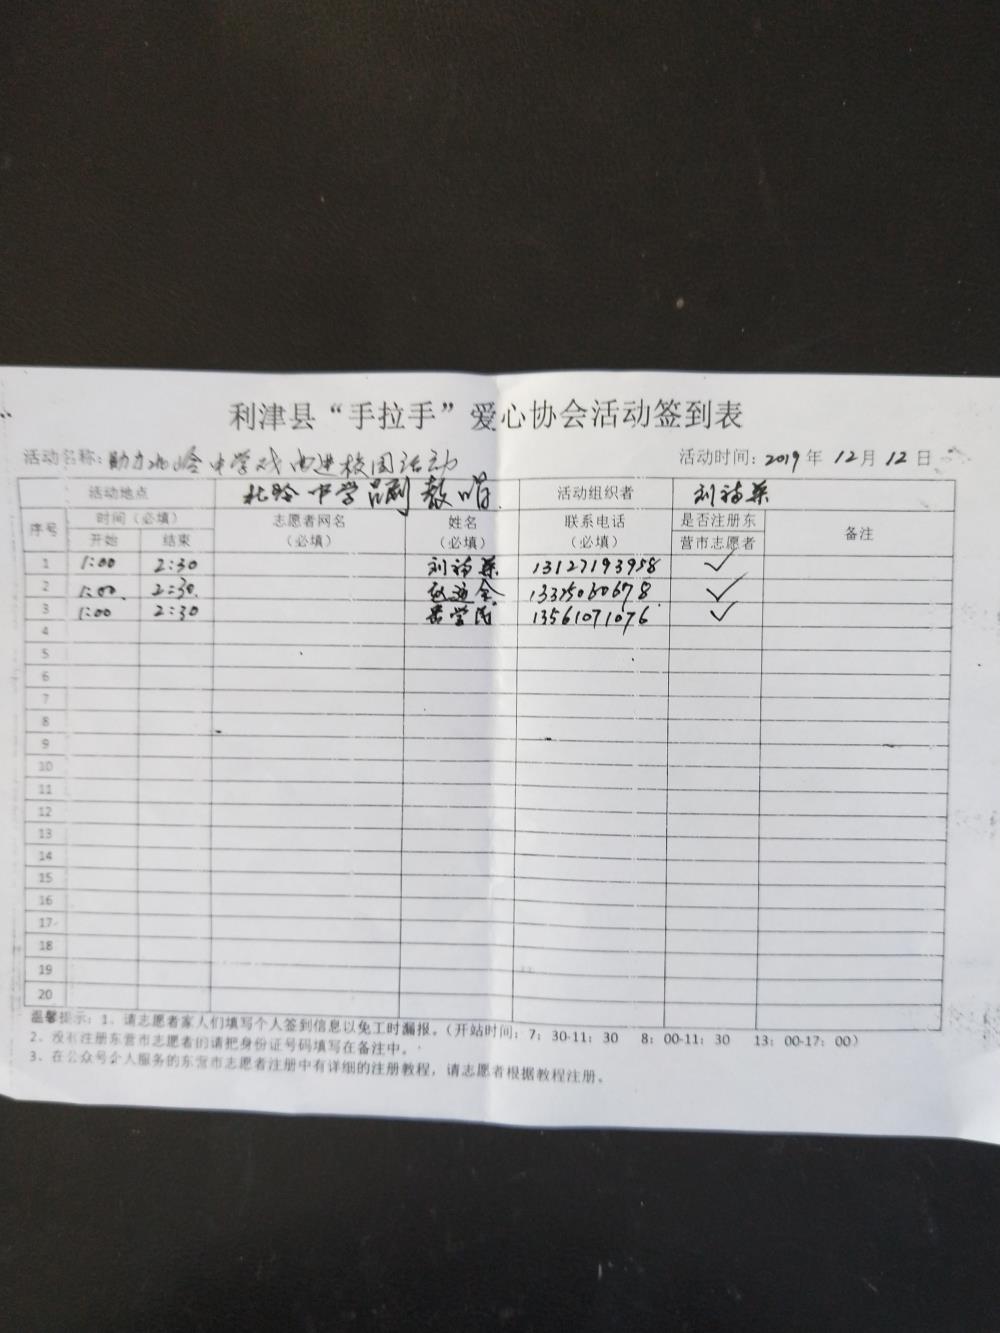 利津县“手拉手”爱心协会活动签到表
活动名称：助力北岭中学戏曲进校园活动 活动时间：2019年12月12日
活动地点 北岭中学吕剧教唱 活动组织者 刘福荣
序号 时间（必填） 志愿者网名（必填） 姓名（必填） 联系电话（必填） 是否注册东营市志愿者 备注
开始 结束
1 1:00 2:30 刘福荣 13127193958 ✓
2 1:00 2:30 ✓
3 1:00 2:30 学民 13561071076 ✓
4
5
6
7
8
9
10
11
12
13
14
15
16
17
18
19
20
温馨提示：1、请志愿者家人们填写个人签到信息以免工时漏报。（开站时间：7：30-11：30 8：00-11：30 13：00-17：00）
2、没有注册东营市志愿者的请把身份证号码填写在备注中。
3、在公众号个人服务的东营市志愿者注册中有详细的注册教程，请志愿者根据教程注册。